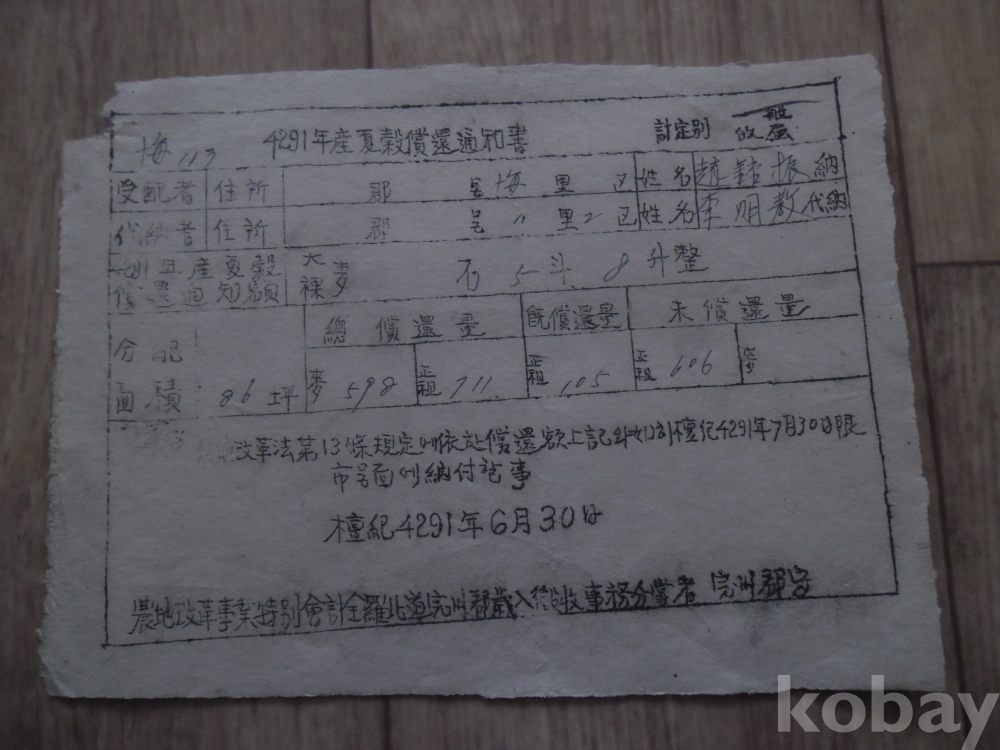 海 113 4291年産夏穀償還通知書 計定別 一般
受配者 住所 郡 邑 海 里 区 姓名 趙 振 納
代納者 住所 郡 邑 〃 里 2 区 姓名 李明教 代納
4291年産夏穀償還通知額 大裸麦 石 5 斗 8 升整
分配面積 86坪 総償還量 既償還量 未償還量
麥 598 正租 711 正租 105 正租 606
改革法第13條規定에依한償還額上記와如히檀紀4291年7月30日限
市邑面에納付할事
檀紀4291年6月30日
農地改革事業特別會計全羅北道完州郡歳入徴收事務分掌者 完州郡守
kobay